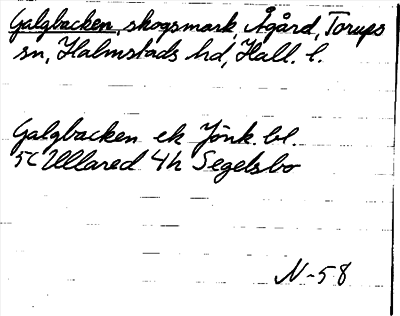 Galgbacken, skogsmark, Ågård, Torups
sn, Halmstads hd, Hall. l.
Galgbacken ek Jönk. bl.
5C Ullared 4h Segelsbo
N-58